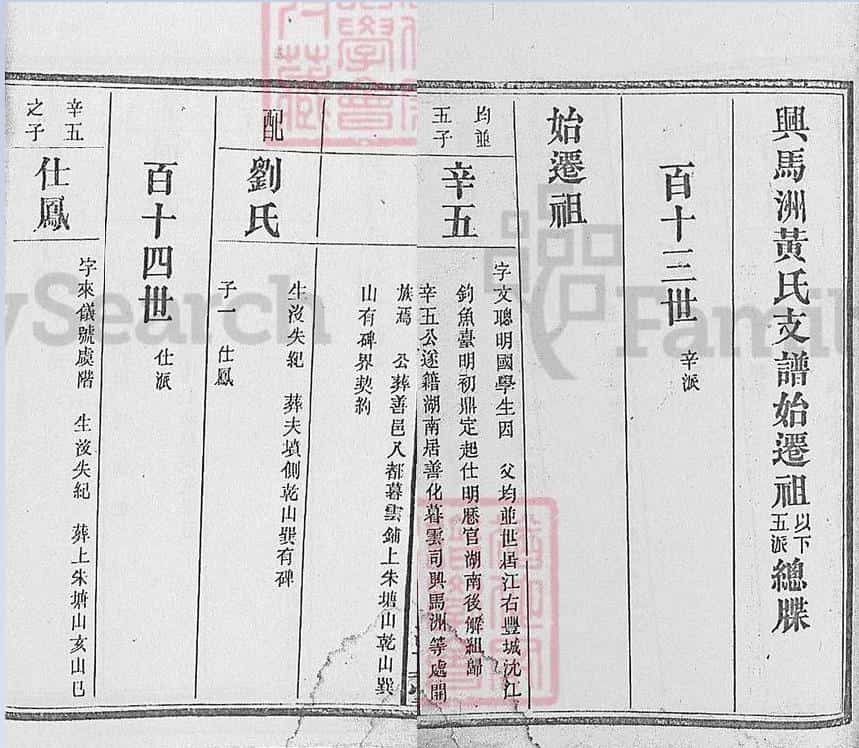 興馬洲黃氏支譜始遷祖以下五派總牒
百十三世 辛派
始遷祖
均並五子 辛五
字文聰明國學生因 父均並世居江右豐城沈江
釣魚臺明初鼎定起仕明歷官湖南後解組歸
辛五公遂籍湖南居善化暮雲司興馬洲等處開
族焉 公葬善邑八都暮雲鋪上朱塘山乾山巽
山有碑界契約
配 劉氏
生沒失紀 葬夫墳側乾山巽有碑
子一 仕鳳
百十四世 仕派
辛五之子 仕鳳
字來儀號虞階 生沒失紀 葬上朱塘山亥山巳
MySearch
Famil